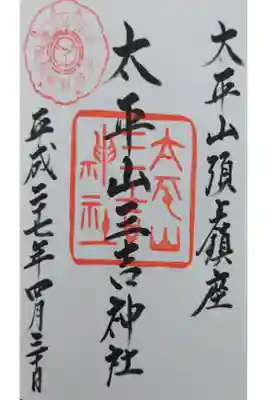 太平山須上鎮座
太平山三吉神社
平成二七年四月三日
太平山
三吉
神社